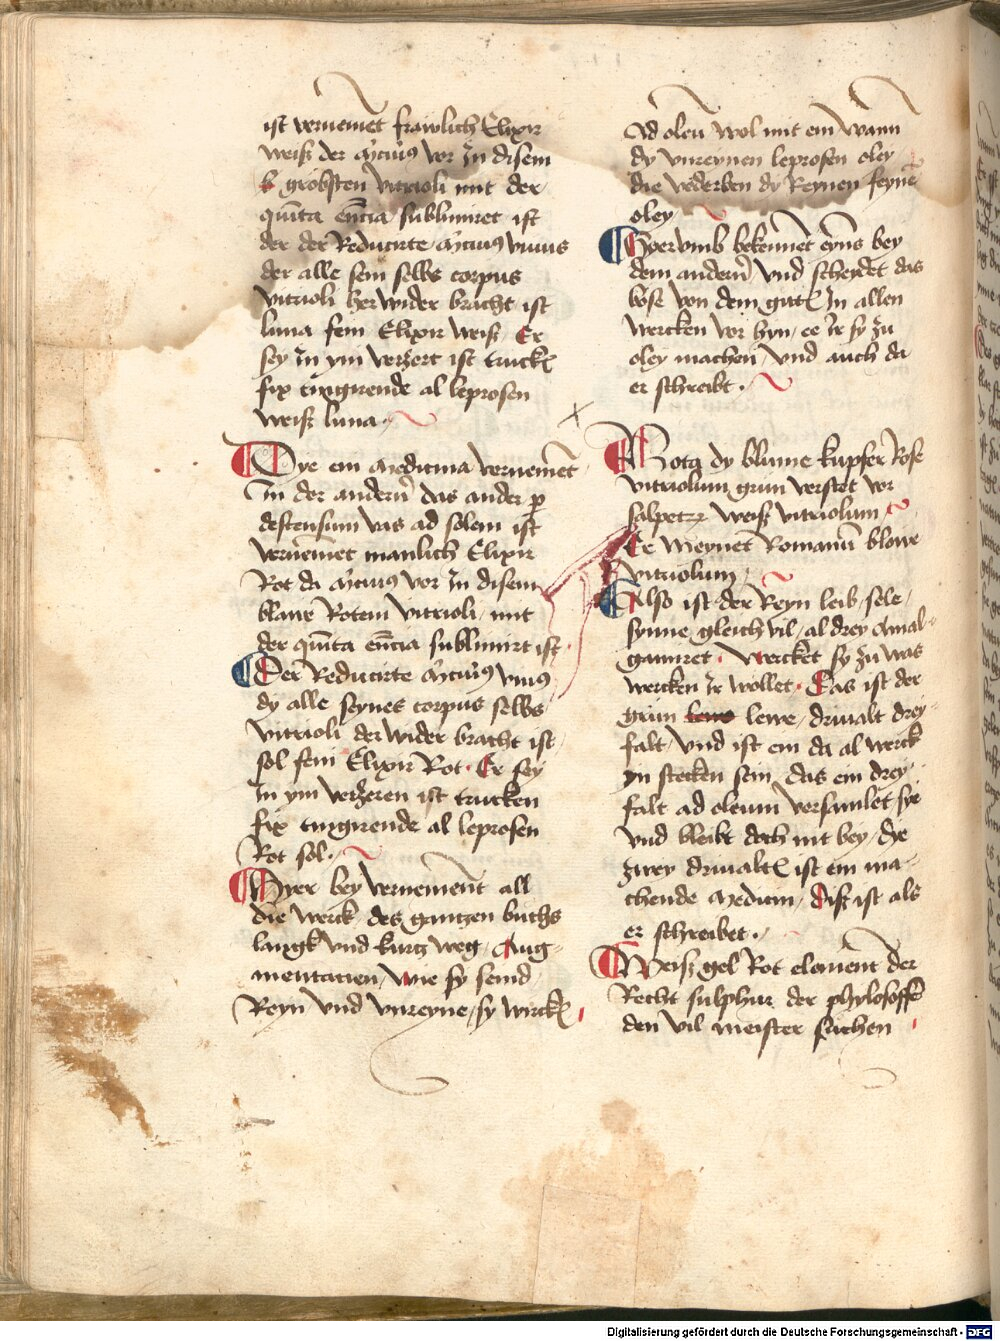 ist vernemet frawlich Elixir
weiß der mrcuriꝰ vor Jn disem
gröbsten vitrioli mit der
quīta eēncia sublimiret ist
der der Reducirte mrcuriꝰ viuus
der alle sein selbs corpus
vitrioli her wider bracht ist
luna sem Elixir weiß Er
sey Jn ym verzert ist truckē
fix tingirende al leprosen
weiß luna
Dye ein medicina vernemet
Jn der andern das ander ꝑ
descensum vas ad solem ist
vernemet manlich Elixir
Rot da mrcuriꝰ vor Jn disem
blauē Rotem vitrioli mit
der quīta eēncia sublimirt ist
Der Reducirte mrcuriꝰ viuꝰ
dy alle seynes corpus selbs
vitrioli der wider bracht ist
sol sem Elixir Rot Er sey
Jn ym verzeren ist trucken
fix tingirende al leprosen
Rot sol
Hyer bey vernement all
die werck des gantzen buchs
langk vnd kurtz weg Aug-
mentacien wie sy seind
Reyn vnd vnreyne sy wirckē
ad oleū wol mit ein wann
dy vnreynen leprosen oley
die vederben dy Reynen seynē
oley
Hyervmb bekennet eyns bey
dem andern vnd scheydet das
böse von dem gutē Jn allen
wercken vor hyn ee Jr sy zu
oley machen vnd auch da
er schreibt
Nota dy blume kupfer Rose
vitriolum grun verstet vor
salpetr weiß vitriolum
Er meynet Romanū blowe
vitriolum
Also ist der Reyn leib sele
synne gleich vil al drey amal-
gamiret wercket sy zu was
wercken Jr wollet Das ist der
grun lewe lewe driualt drey
falt vnd ist ein da al werck
yn stecken sein das ein drey
falt ad oleum versamlet sye
vnd bleibt doch nit bey dye
zwey driualtē ist ein ma-
chende medicin dist ist als
er schreibet
Weiß gel Rot element der
Recht sulphur der phylosoffē
den vil meister suchen
Digitalisierung gefördert durch die Deutsche Forschungsgemeinschaft - DFG